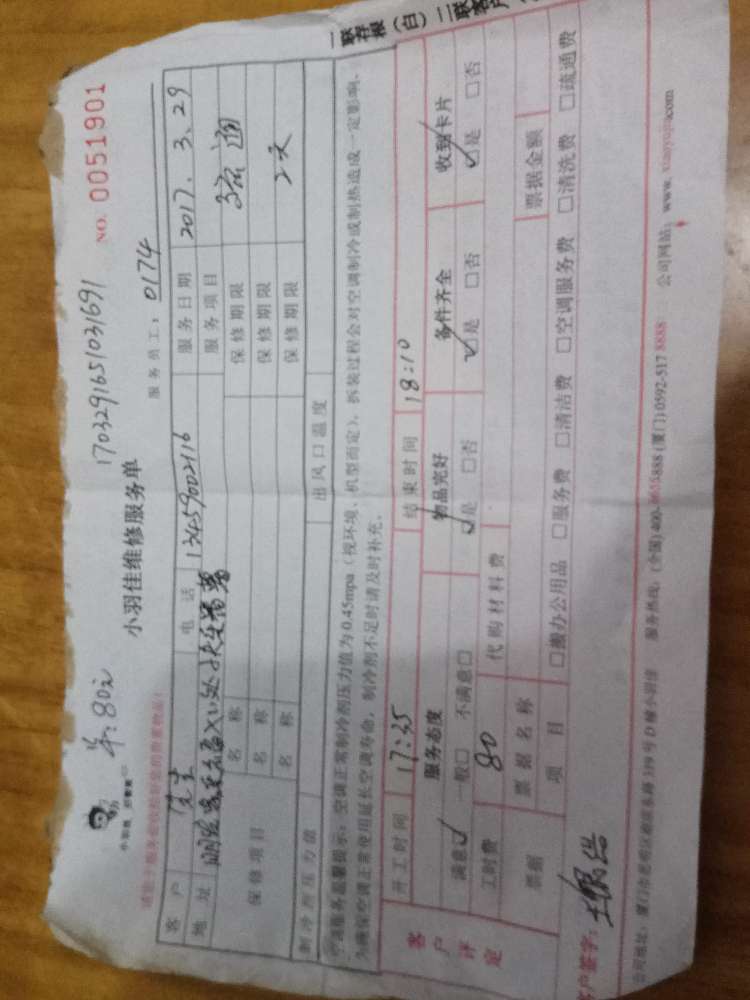 小羽佳 好管家
单:80元
小羽佳维修服务单
1703291651031691
NO. 0051901
服务员工: 0174
客户 先生 电话 13459002116 服务日期 2017.3.29
地址 服务项目 疏通
保修项目 名称 保修期限
名称 保修期限
名称 保修期限 2天
制冷剂压力值 出风口温度
空调服务温馨提示:空调正常制冷剂压力值为0.45mpa(视环境、机型而定),拆装过程会对空调制冷或制热造成一定影响,
为确保空调正常使用延长空调寿命,制冷剂不足时请及时补充。
开工时间 17:35 结束时间 18:10
客户评定 服务态度 物品完好 备件齐全 收到卡片
满意☑ 一般□ 不满意□ ☑是 □否 ☑是 □否 ☑是 □否
工时费 80 代购材料费
票据 票据名称 票据金额
项目 □搬办公用品 □服务费 □清洁费 □空调服务费 □清洗费 □疏通费
客户签字:
公司地址: 339号D幢小羽佳 服务热线:(全国)400-8655888(厦门)0592-5178888 公司网站:www.xiaoyujia.com
一联存根(白)二联客户